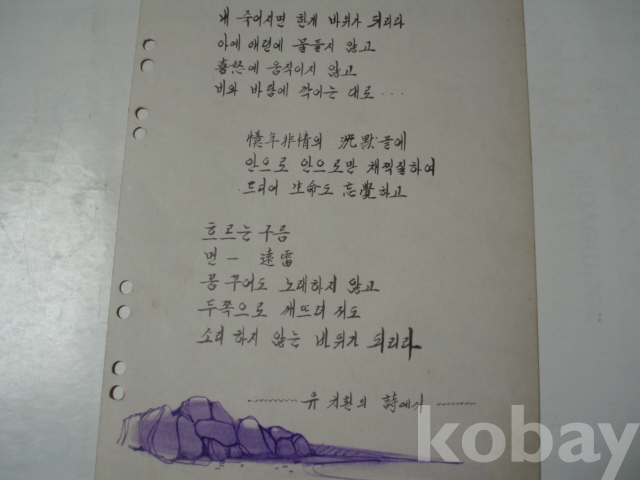 내 죽어지면 한개 바위가 되리라
아예 애련에 물들지 않고
喜怒에 움직이지 않고
비와 바람에 깎이는 대로...
憶年非情의 沈默끝에
안으로 안으로만 채찍질하여
드디어 生命도 忘覺하고
흐르는 구름
먼 - 遠雷
꿈 꾸어도 노래하지 않고
두쪽으로 깨뜨려 져도
소리 하지 않는 바위가 되리라
유 치환의 詩에서
kobay